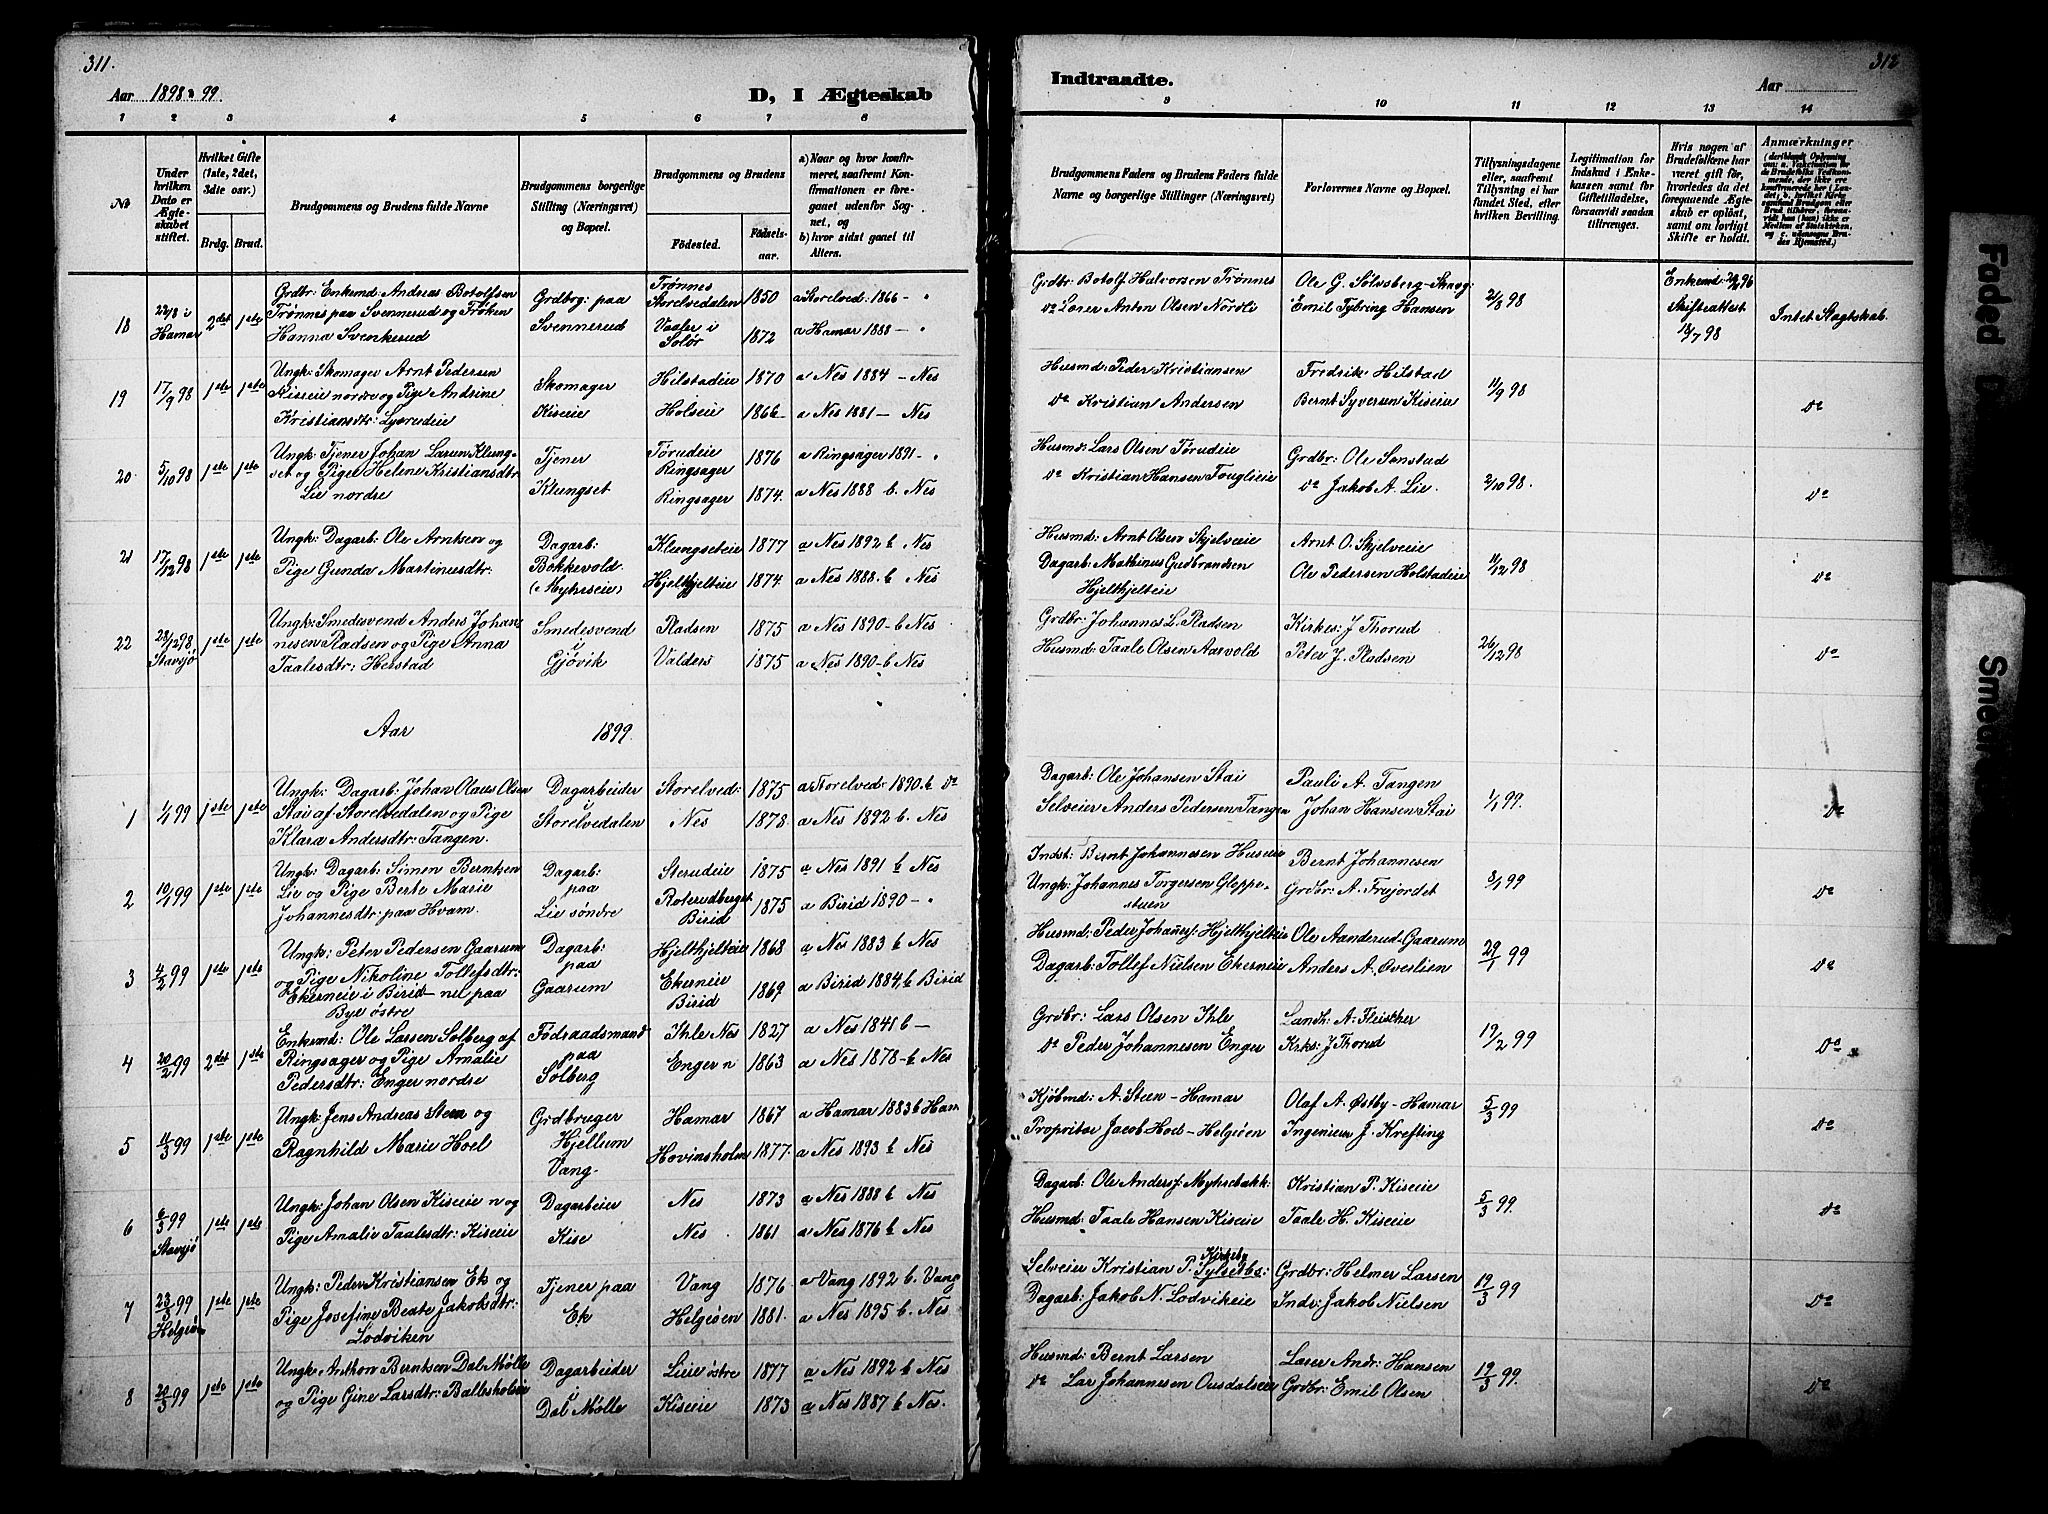 311.
Aar 1898 & 99.
D, I Ægteskab
1 2 3 4 5 6 7 8
No
Under hvilken Dato er Ægteskabet stiftet.
Hvilket Gifte (1ste, 2det, 3die osv.)
Brdg. Brud.
Brudgommens og Brudens fulde Navne
Brudgommens borgerlige Stilling (Næringsvei) og Bopæl.
Brudgommens og Brudens
Fødested. Fødselsaar.
a) Naar og hvor konfirmeret, saafremt Konfirmationen er foregaaet udenfor Sognet, og
b) hvor sidst gaaet til Alters.
18 22/8 i Hamar 2det 1ste
Grdbr: Enkemd: Andreas Botolfsen
Trønnes paa Svennerud og Frøken
Hanna Svenkerud
Grdbrg: paa
Svennerud
Trønnes
Storelvedalen 1850 a Storelved: 1866 - "
Vaaler i
Solør 1872 a Hamar 1888 - "
19 17/9 98 1ste 1ste
Ungk: Skomager Arnt Pedersen
Kiseeie nordre og Pige Andrine
Kristiansdtr:
Skomager
Kiseeie
Hilstadeie 1870 a Nes 1884 - Nes
Holseie 1866 - a Nes 1881 - Nes
20 5/10 98 1ste 1ste
Ungk: Tjener Johan Larsen Klung-
set og Pige Helene Kristiansdtr
Lie nordre
Tjener
Klungset
Tørudeie
Ringsager 1876 a Ringsager 1891 - "
Ringsager 1874. a Nes 1888 b. Nes
21 17/12 98 1ste 1ste
Ungk: Dagarb: Ole Arntsen og
Pige Gunda Martinusdtr:
Dagarb:
Bokkevold.
(Myhrseie)
Klungseteie 1877 a Nes 1892 b Nes
Hjelthjelteie 1874. a Nes 1888. b Nes
22 28/12 98 Stavsjø 1ste 1ste
Ungk: Smedesvend Anders Johan-
nesen Pladsen og Pige Anna
Taalesdtr: Helstad
Smedesvend
i
Gjøvik
Pladsen 1875 a Nes 1890 - b Nes
Valders 1875 a Nes 1890 - b Nes
Aar 1899.
1 1/1 99 1ste 1ste
Ungk: Dagarb: Johan Olaus Olsen
Stai af Storelvedalen og Pige
Klara Andersdtr: Tangen.
Dagarbeider
i
Storelvedalen
Storelved: 1875 a Storelved: 1890. b do
Nes 1878. a Nes 1892 b. Nes
2 10/1 99 1ste 1ste
Ungk: Dagarb: Simen Berntsen
Lie og Pige Berte Marie
Johannesdtr: paa Hvam.
Dagarb:
paa
Lie søndre
Sterudeie 1875 a Nes 1891 b Nes
Roterudberget
Birid 1875 a Birid 1890 - "
3 4/2 99 1ste 1ste
Ungk: Peter Pedersen Gaarum
og Pige Nikoline Tollefsdtr:
Ekerneie i Birid - nu paa
Bye østre
Dagarb:
paa
Gaarum
Hjelthjelteie 1868 a Nes 1883 b Nes
Ekerneie
Birid 1869 a Birid 1884, b Birid
4 20/2 99 2det 1ste
Enkemd: Ole Larsen Solberg af
Ringsager og Pige Amalie
Pedersdtr: Enger nordre
Fødraadsmand
paa
Solberg
Ihle Nes 1827 a Nes 1841 b -
Enger n 1863 a Nes 1878 - b Nes
5 11/3 99 1ste 1ste
Ungk: Jens Andreas Steen og
Ragnhild Marie Hoel
Grdbruger
Hjellum
Vang.
Hamar 1867 a Hamar 1883 b Ham
Hovinsholm 1877. a Nes 1893 b Nes
6 6/3 99 Stavsjø 1ste 1ste
Ungk: Johan Olsen Kiseeie n og
Pige Amalie Taalesdtr: Kiseeie
Dagarbeie
Kise
Nes 1873 a Nes 1888 b Nes
Nes 1861 a Nes 1876 b Nes
7 23/3 99 Helgøen 1ste 1ste
Ungk: Peder Kristiansen Ek og
Pige Josefine Beate Jakobsdtr:
Lodviken
Tjener paa
Ek
Vang 1876 a Vang 1892 b. Vang
Helgøen 1881. a Nes 1895 b. Nes
8 20/3 99 1ste 1ste
Ungk: Anthon Berntsen Dal Mølle
og Pige Gine Larsdtr: Ballesholeie
Dagarbeider
i
Dal Mølle
Lieie østre 1877 a Nes 1892 b Nes
Kiseeie 1873 a Nes 1887 b Nes.
312
Indtraadte.
Aar
9 10 11 12 13 14
Brudgommens Faders og Brudens Faders fulde Navne og borgerlige Stillinger (Næringsvei)
Forlovernes Navne og Bopæl.
Tillysningsdagene eller, saafremt Tillysning ei har fundet Sted, efter hvilken Bevilling.
Legitimation for Indskud i Enkekassen samt for Giftetilladelse, forsaavidt saadan tiltrænges.
Hvis nogen af Brudefolkene har været gift før, hvorledes da det foregaaende Ægteskab er opløst, samt om lovligt Skifte er holdt.
Anmærkninger
Grdbr Botolf Halvorsen Trønnes
do Anton Olsen Nordli
Ole G. Sølvsberg - Skaug
Emil Tybring Hansen
21/8 98
Enkemd 20/2 96
Skifteattest
18/7 98
Intet Slagtskab.
Husmd: Peder Kristiansen
do Kristian Andersen
Fredrik Hilstad
Bernt Syversen Kiseeie
11/9 98
do
Husmd: Lars Olsen Tørudeie
do Kristian Hansen Fouglieie
Grdbr: Ole Sonstad
do Jakob A. Lie.
2/10 98.
do
Husmd: Arnt Olsen Skjelveie
Dagarb: Mathinus Gudbrandsen
Hjelthjelteie
Arnt O. Skjelveie
Ole Pedersen Holstadeie
11/12 98
do
Grdbr: Johannes L. Pladsen
Husmd Taale Olsen Aarvold
Kirkes: J Thorud
Peter J. Pladsen
26/12 98
do
Dagarb: Ole Johansen Stai
Selveier Anders Pedersen Tangen
Pauli A. Tangen
Johan Hansen Stai
1/1 99.
do
Indst: Bernt Johannesen Huseie
Ungk: Johannes Torgersen Gloppe-
stuen
Bernt Johannesen
Grdbr: A. Frøjordet
8/1 99
do
Husmd: Peder Johannes: Hjelthjelteie
Dagarb: Tollef Nielsen Ekerneie
Ole Aanderud Gaarum
Anders A. Øverlien
29/1 99
do
Grdbr: Lars Olsen Ihle
do Peder Johannesen Enger
Landh: A. Fleischer
Kirks: J Thorud
19/2 99
do
Kjøbmd: A. Steen - Hamar
Propritør Jacob Hoel - Helgøen
Olaf A. Østby - Hamar
Ingeniør J. Krefting
5/3 99
do
Dagarb: Ole Anders: Myhrebakk:
Husmd: Taale Hansen Kiseeie
Kristian P. Kiseeie
Taale H. Kiseeie
5/3 99.
do
Selveier Kristian P. Kirkeby
Dagarb: Jakob N. Lodvikeie
Grdbr: Helmer Larsen
Indr: Jakob Nielsen
19/3 99
do
Husmd: Bernt Larsen
do Lar Johannesen Ousdalseie
Lærer Andr: Hansen
Grdbr: Emil Olsen
19/3 99.
do
Faded